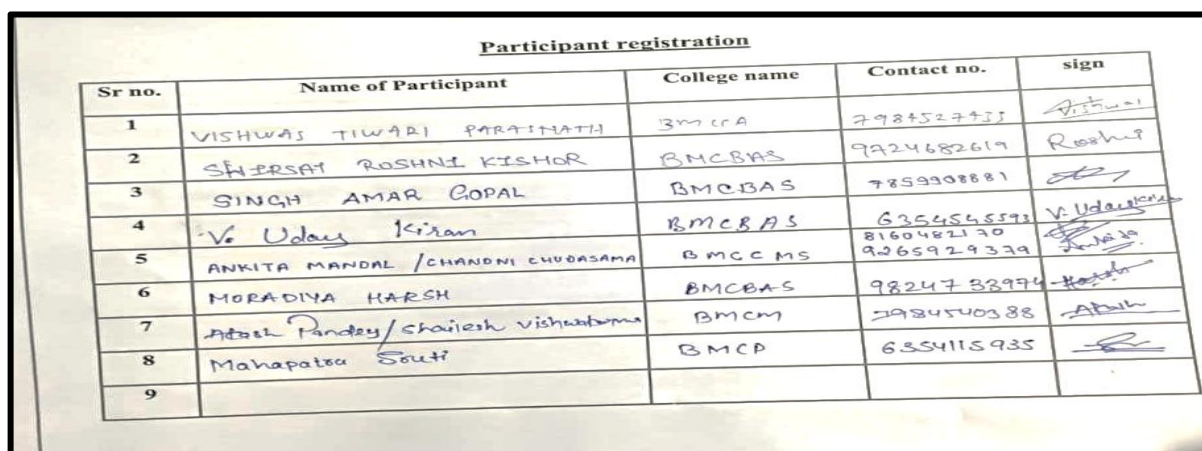 Participant registration
Sr no. Name of Participant College name Contact no. sign
1 VISHWAS TIWARI PARASNATH BMCCA Vishwas
2 SHIRSAT ROSHNI KISHOR BMCBAS 9724682619 Roshni
3 SINGH AMAR GOPAL BMCBAS 7859908881
4 V. Uday Kiran BMCBAS 6354545593 V. Uday Kiran
5 ANKITA MANDAL / CHANDNI CHUDASAMA BMCCMS 8160482170 Ankita
9265929379
6 MORADIYA HARSH BMCBAS 9824733974 Harsh
7 Pandey / Shailesh Vishwakarma BMCM 7984540388
8 Mahapatra Souti BMCP 6354115935
9